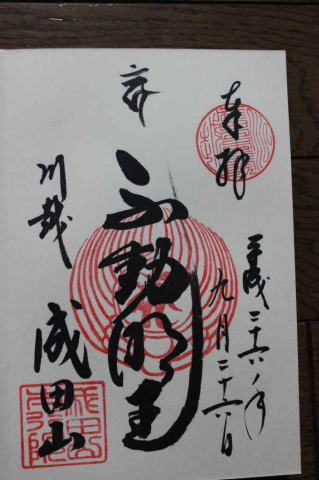 奉拝
平成二十六ノ年
九月二十六日
不動明王
川越
成田山